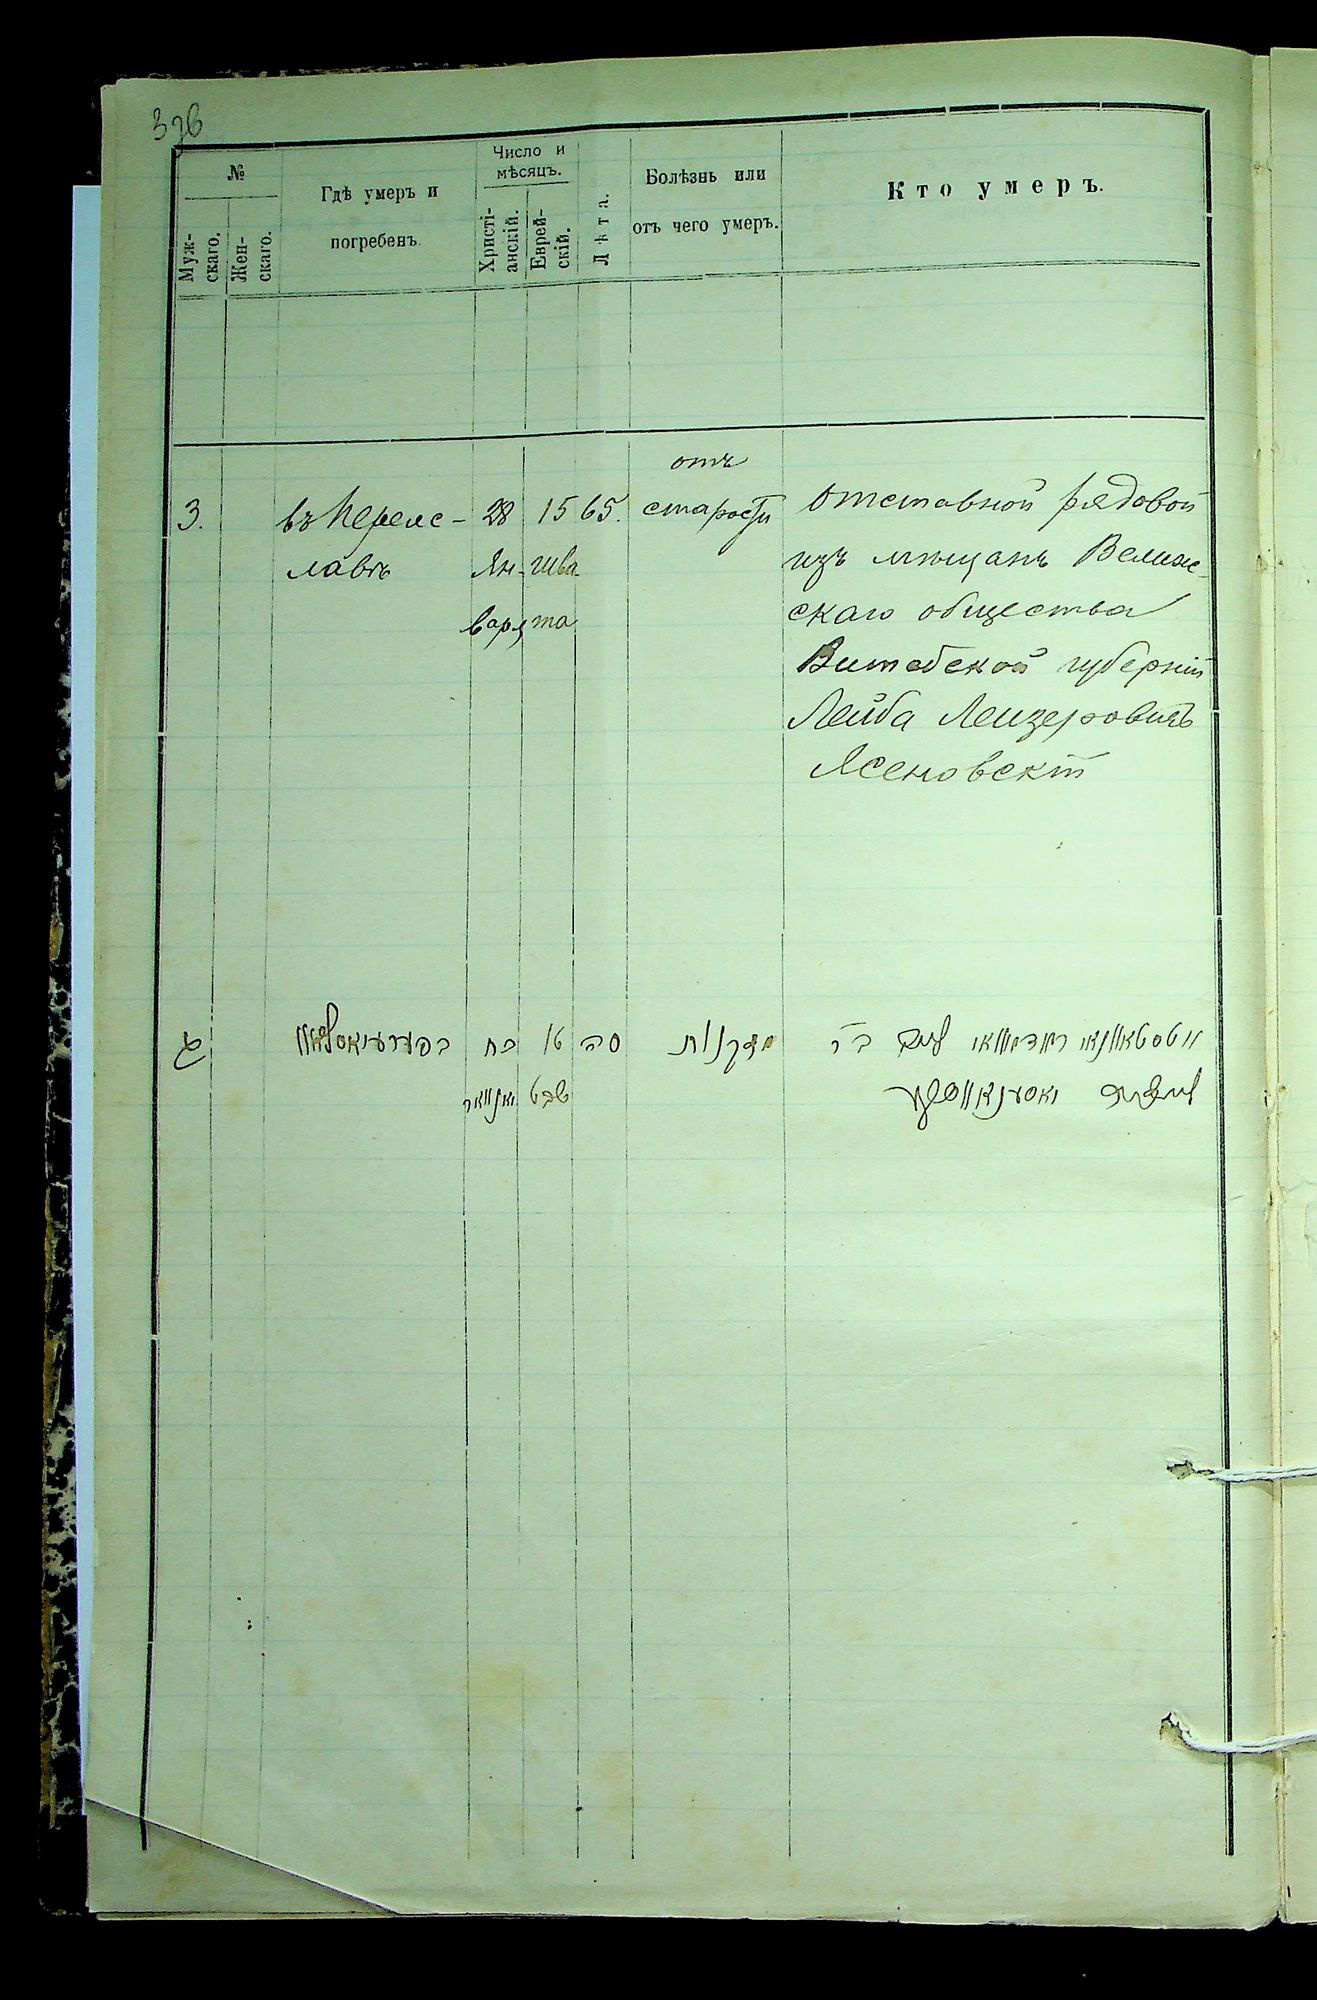 326
№
Муж-
скаго.
Жен-
скаго.
Гдѣ умеръ и
погребенъ
Число и
мѣсяцъ.
Христі-
анскій.
Еврей-
скій.
Лѣта.
Болѣзнь или
отъ чего умеръ.
Кто умеръ.
3.
въ Перея-
лавѣ
28
Ян-
варя
15
шва
та
65.
отъ
старости
Отставной рядовой
изъ мѣщанъ Велиж-
скаго общества
Витебской губерніи
Лейба Лейзеровичъ
Ясеновскій
ג
כח
יאנוואר
טו
שבט
סה
מזקנות
לייב ב״ר